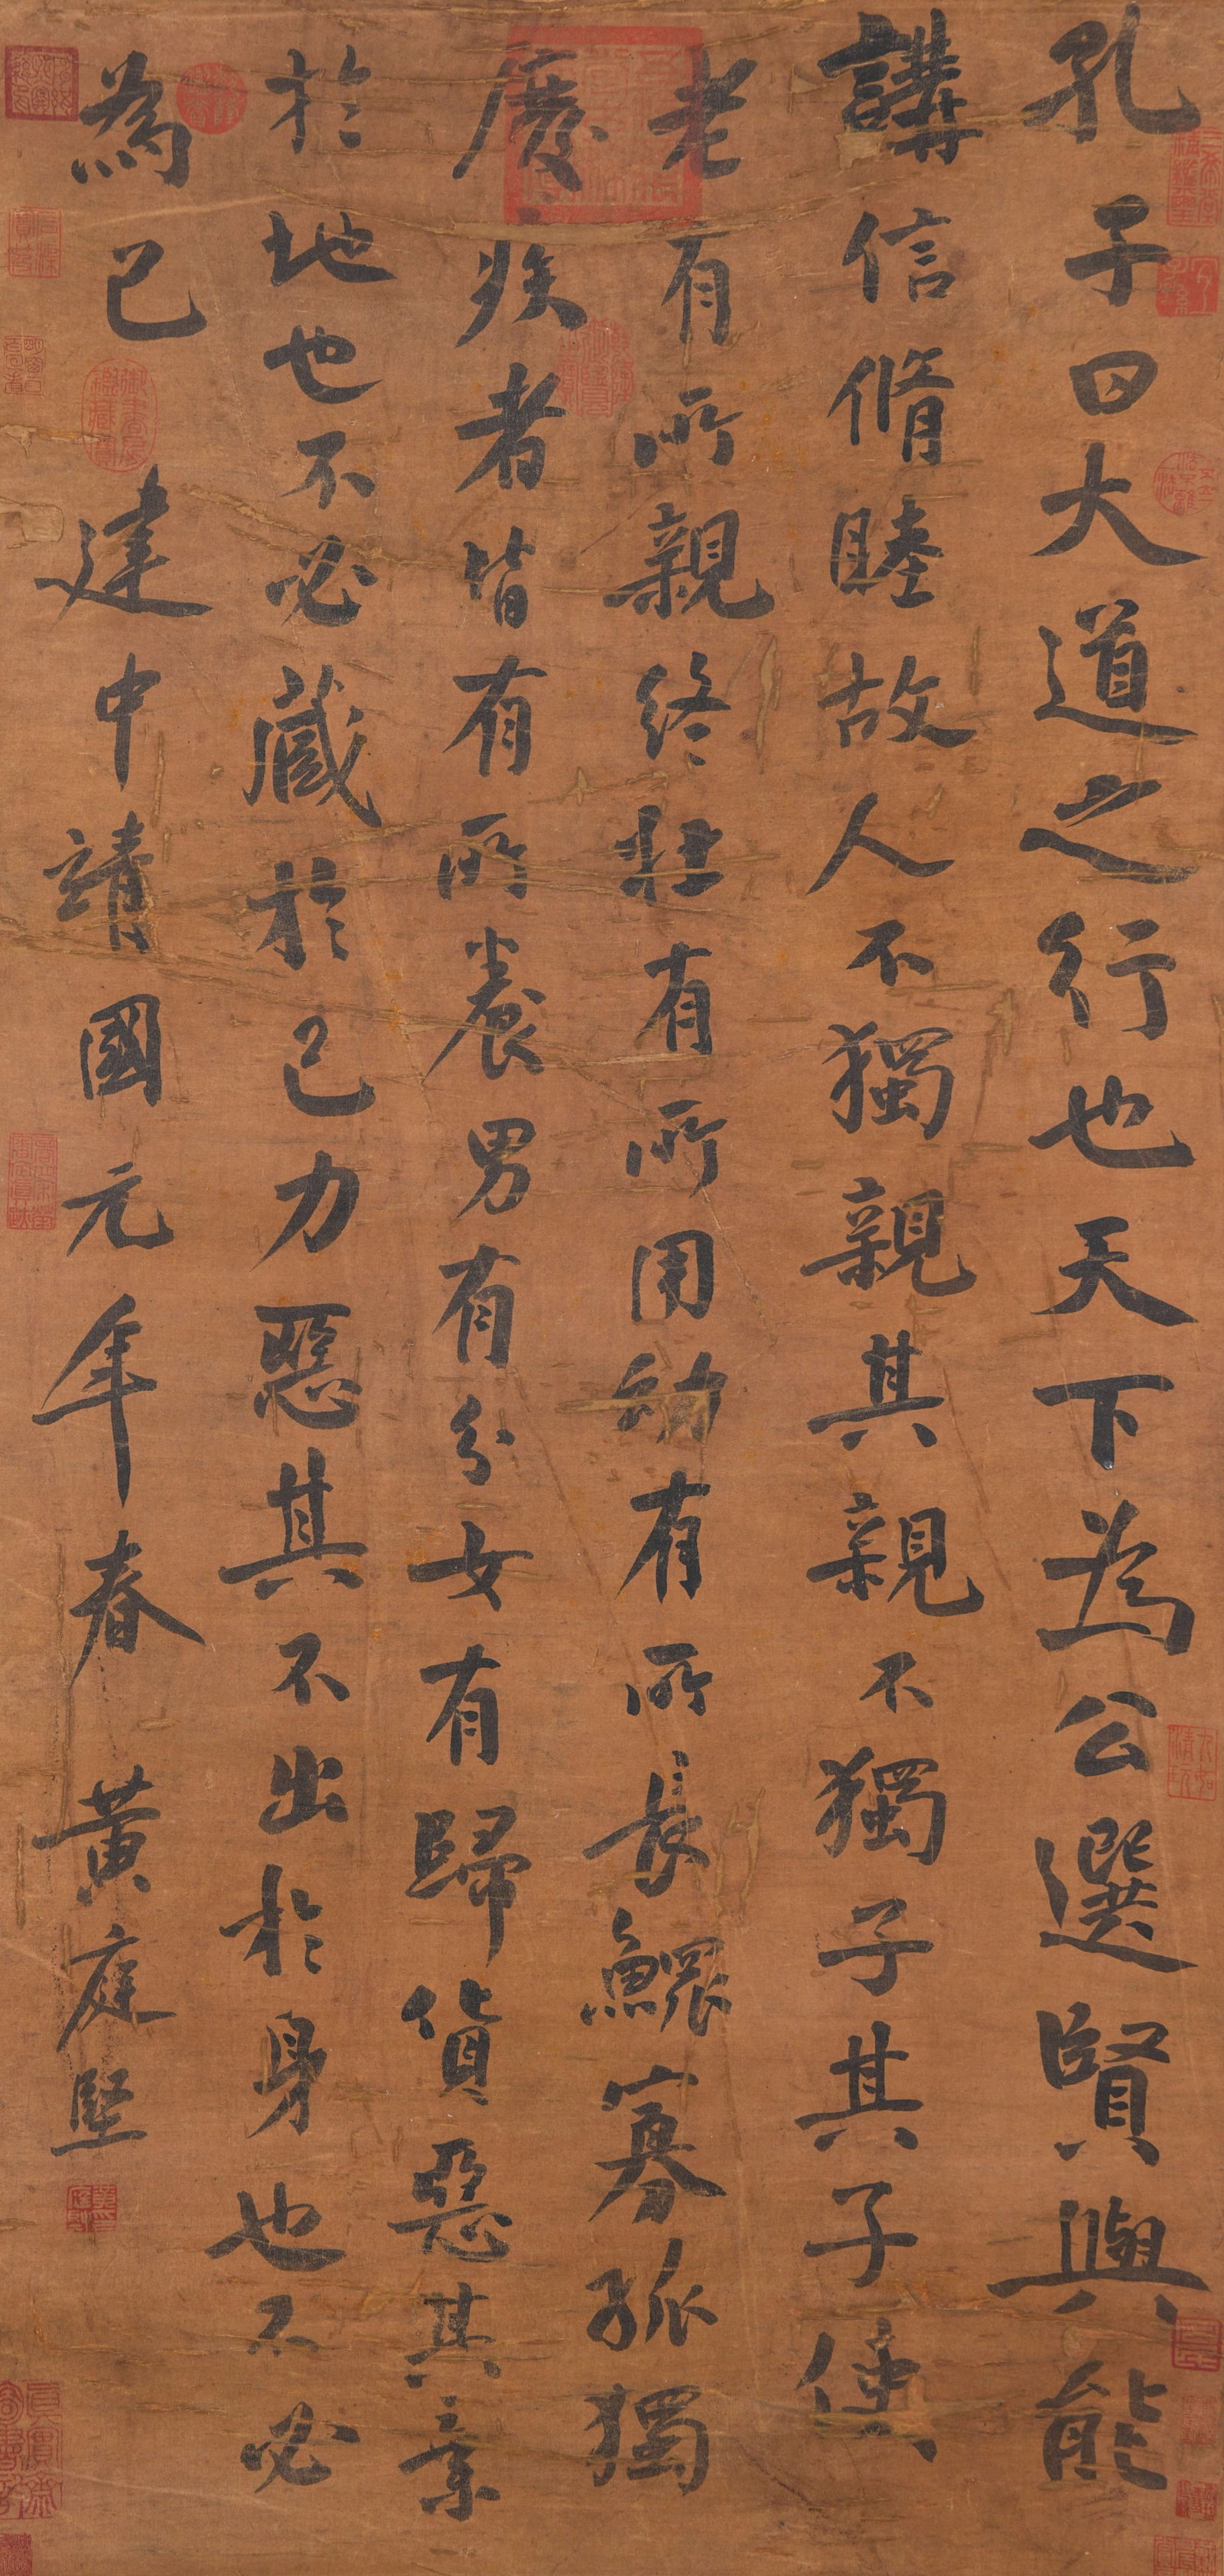 孔子曰大道之行也天下為公選賢與能
講信脩睦故人不獨親其親不獨子其子使
老有所親終壯有所用幼有所長鰥寡孤獨
廢疾者皆有所養男有分女有歸貨惡其棄
於地也不必藏於己力惡其不出於身也不必
為己 建中靖國元年春 黃庭堅